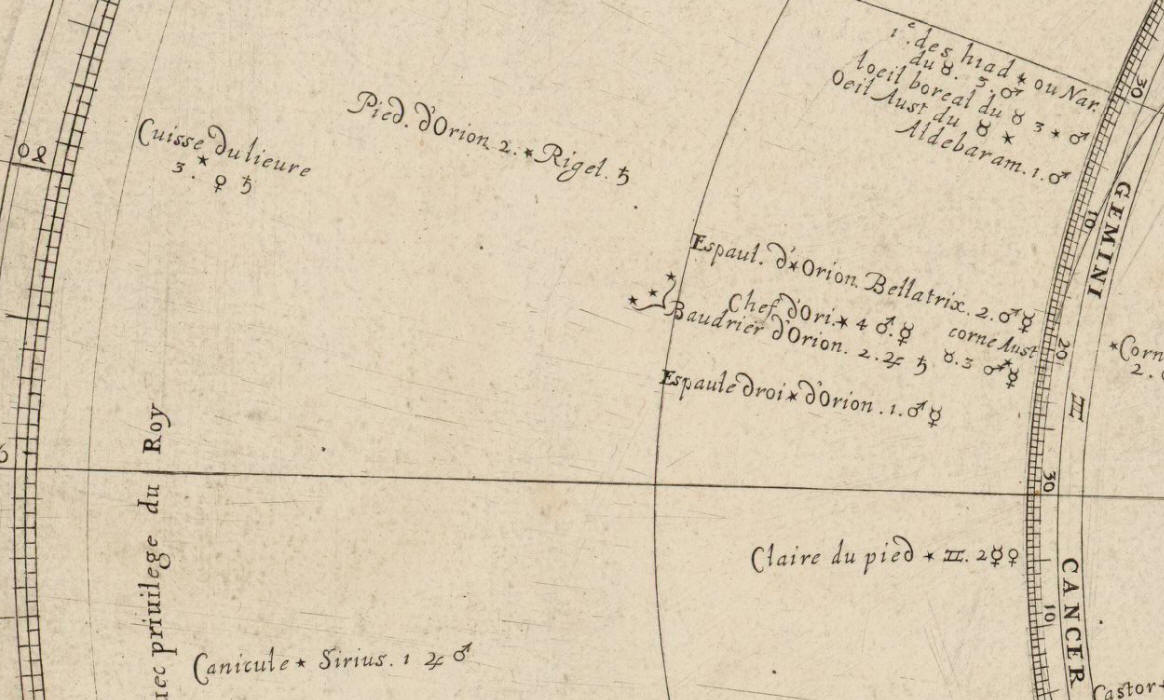 1.e des hiad ★ ou Nar.
du ♉. 3. ♂
Loeil boreal du ♉ 3 ★ ♂
Oeil Aust du ♉ ★
Aldebaram. 1. ♂
Pied. d'Orion 2. ★ Rigel. ♄
Cuisse du lieure
★
3. ♀ ♄
30
10
GEMINI
Espaul. d'★Orion Bellatrix. 2. ♂ ☿
Chef d'Ori.★ 4 ♂.☿
Baudrier d'Orion. 2. ♃ ♄
corne Aust
♉. 3 ♂ ★ ☿
20
★Corn
2.
Espaule droi★ d'Orion. 1. ♂ ☿
♊
30
uec priuilege du Roy
Claire du pied ★ ♊. 2 ☿ ♀
CANCER
10
Canicule ★ Sirius. 1 ♃ ♂
Castor